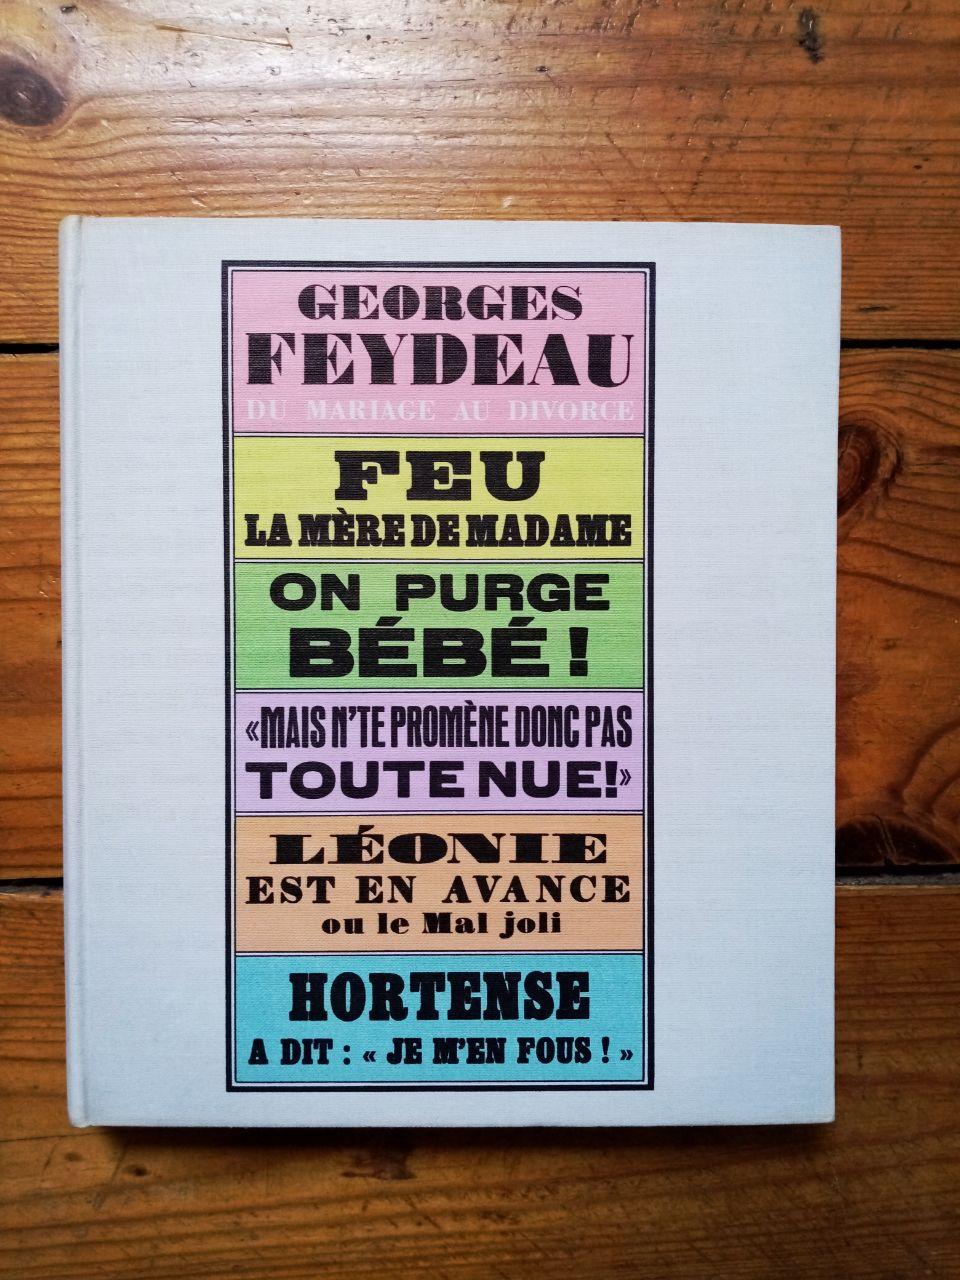 GEORGES
FEYDEAU
DU MARIAGE AU DIVORCE
FEU
LA MÈRE DE MADAME
ON PURGE
BÉBÉ !
«MAIS N'TE PROMÈNE DONC PAS
TOUTE NUE!»
LÉONIE
EST EN AVANCE
ou le Mal joli
HORTENSE
A DIT : « JE M'EN FOUS ! »